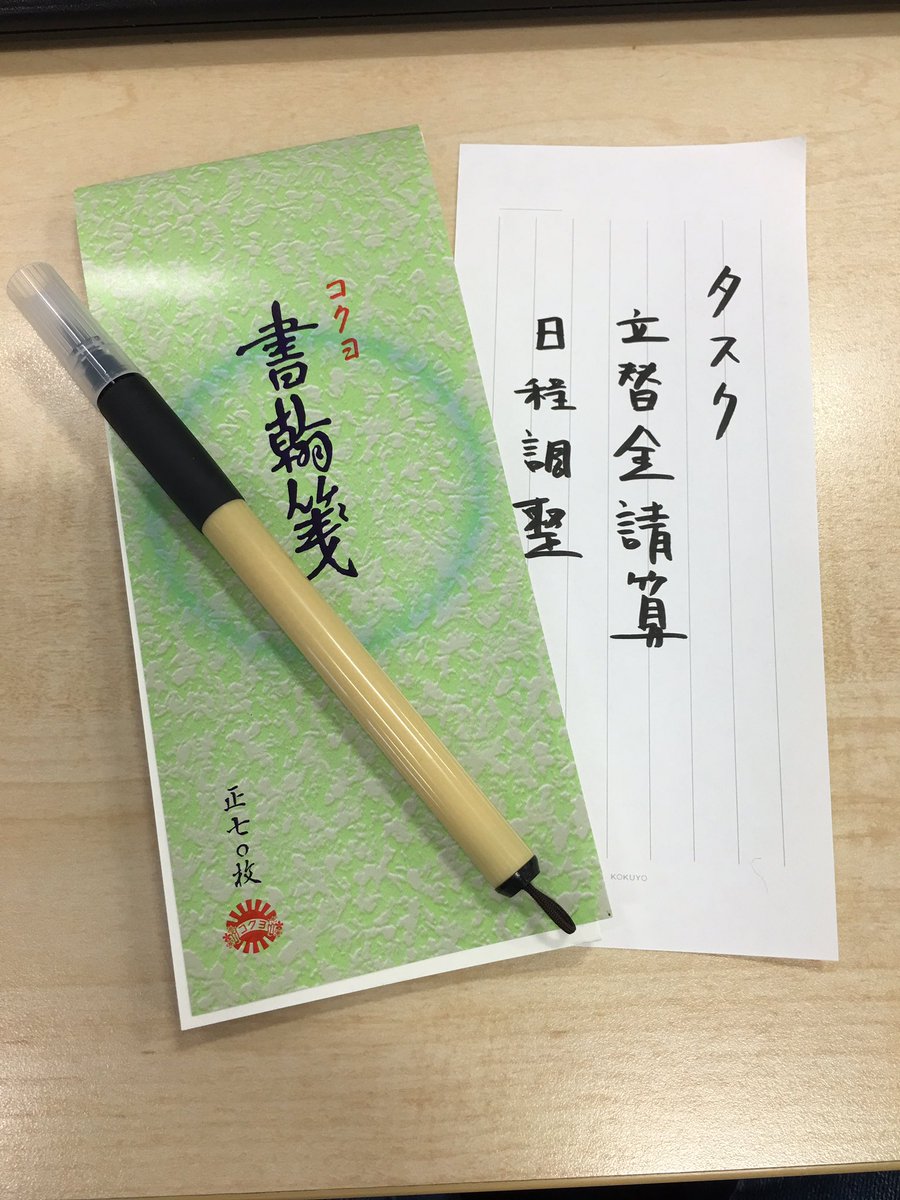 コクヨ
書翰箋
正七〇枚
コクヨ
タスク
立替金請算
日程調整
KOKUYO